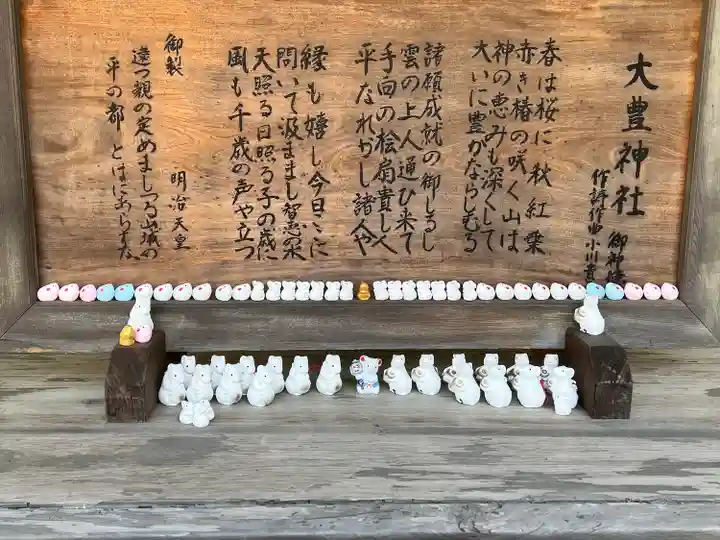 大豊神社 御神
作詩作曲小川
春は桜に秋紅葉
赤き椿の咲く山は
神の恵みも深くして
大いに豊かならしむる
諸願成就の御しるし
雲の上人通ひ来て
手向の桧扇貴し人
平なれかし諸人や
縁も嬉し今日ここに
問いて汲ままし智恵の水
天照る日照る子の歳に
風も千歳の声や立つ
御製 明治天皇
遠つ観の定めましつる山城の
平の都 とはにあらすな